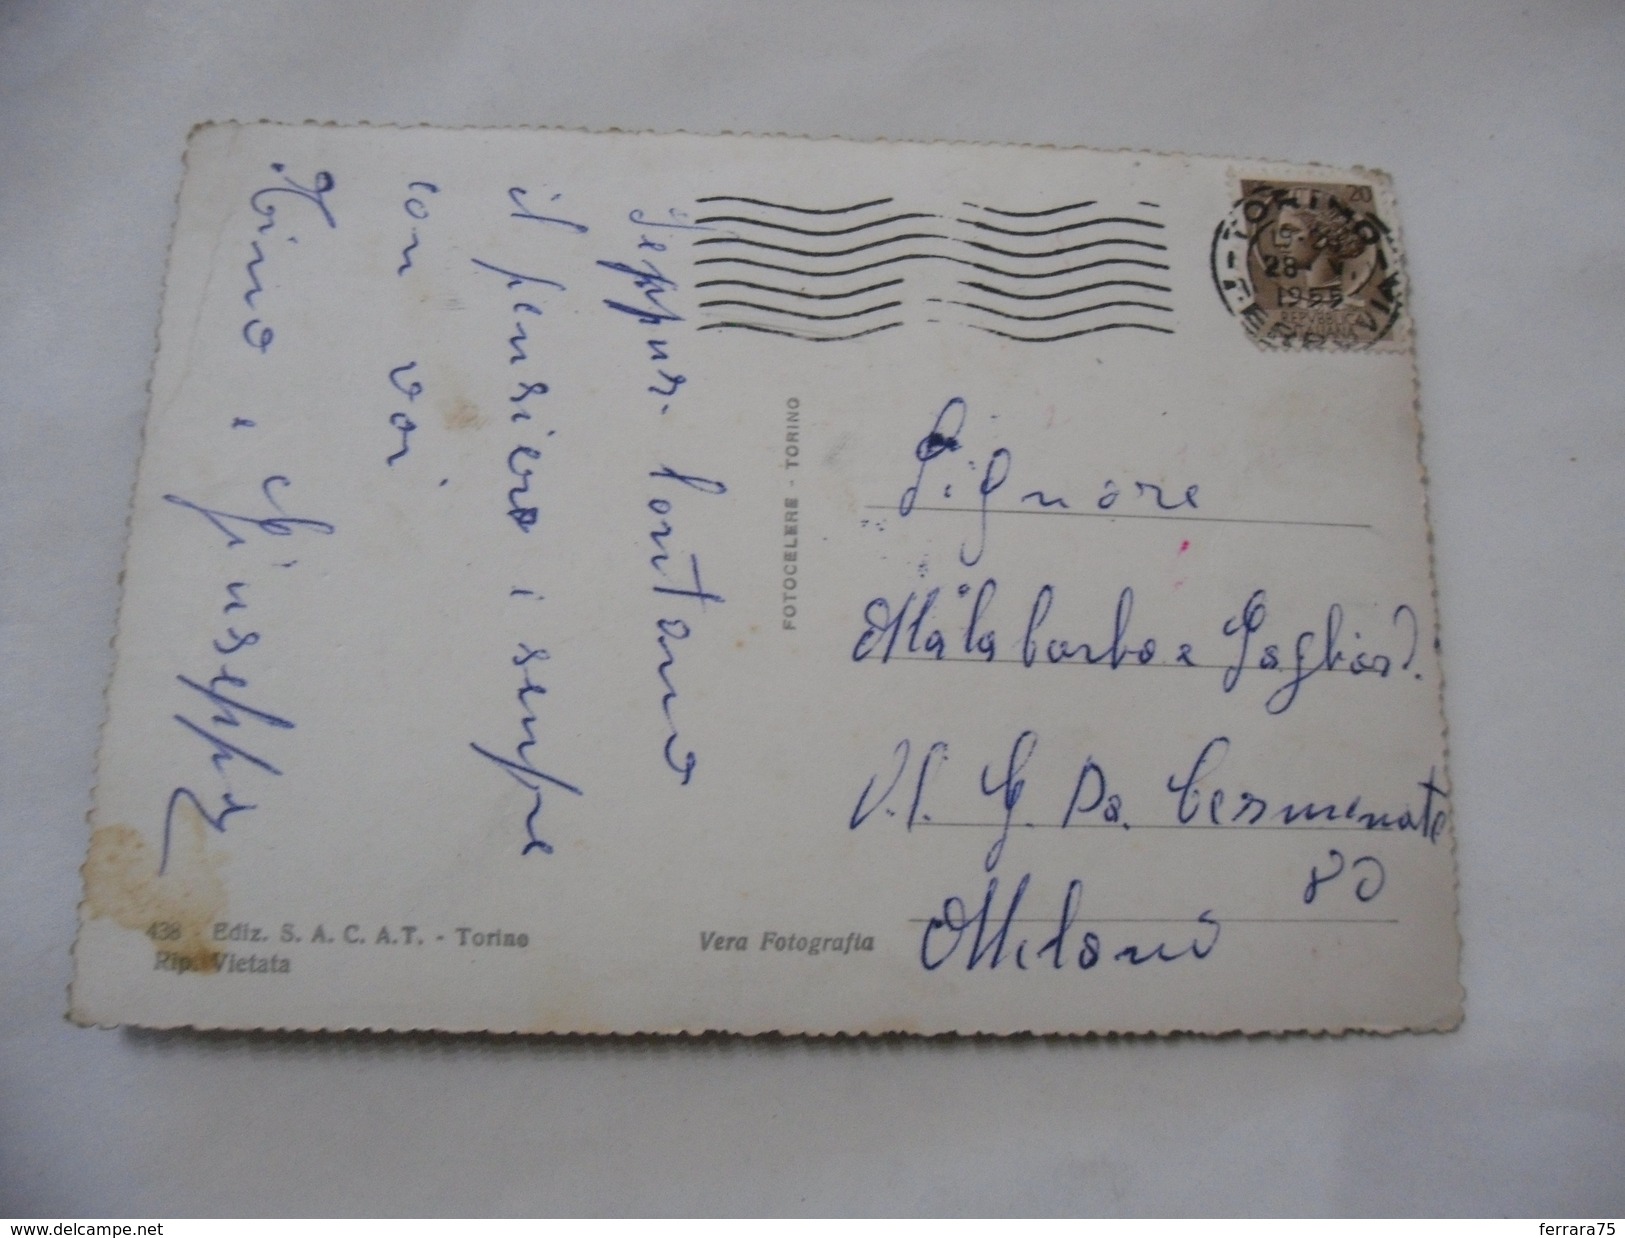 Seppur lontano
il pensiero è sempre
con voi
Nino e Giuseppe
FOTOCELERE - TORINO
438 - Ediz. S. A. C. A. T. - Torino
Rip. Vietata
Vera Fotografia
20
TORINO
28
1955
FERROVIA
REPVBBLICA
ITALIANA
Signore
Malabarba e Gagliard.
V.l. G. Da Cermenate
80
Milano
www.delcampe.net
ferrara75